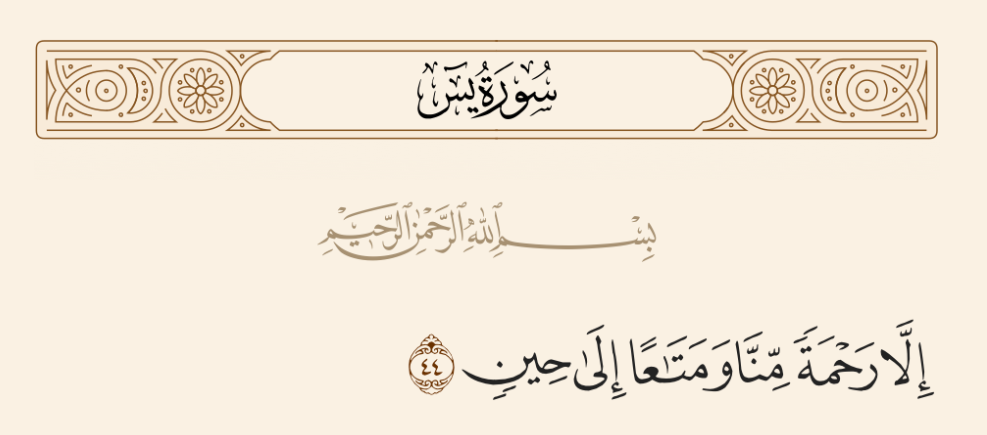 سُورَةُ يسٓ
بِسْمِ ٱللَّهِ ٱلرَّحْمَٰنِ ٱلرَّحِيمِ
إِلَّا رَحْمَةً مِّنَّا وَمَتَٰعًا إِلَىٰ حِينٍ ٤٤